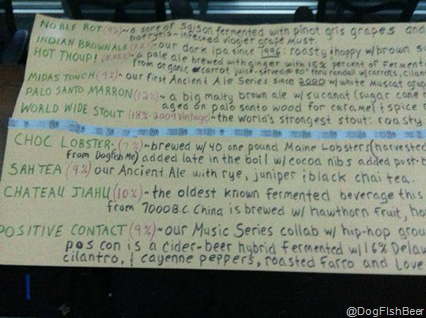 NOBLE ROT (9%)~a sort of saison fermented with pinot gris grapes and
botrytis-infected viogier grape must.
INDIAN BROWN ALE ~our dark ipa since 1999: roasty & hoppy w/brown su
HOT THOUP! ~a pale ale brewed with ginger with 15% percent of ferment
from organic carrot juice-served w/carrots, cilant
MIDAS TOUCH (9%)~our first Ancient Ale Series since 2000 w/white muscat grap
PALO SANTO MARRON (12%)~a big malty brown ale w/sucanat (sugar cane
aged on palo santo wood for caramel & spice
WORLD WIDE STOUT (18%-2009 vintage)~the world's strongest stout: roasty
CHOC LOBSTER-(7%)~brewed w/40 one pound Maine Lobsters (harvested
from Dogfish Me) added late in the boil w/cocoa nibs added post-b
SAH TEA (9%) our Ancient Ale with rye, juniper & black chai tea.
CHATEAU JIAHU (10%)~the oldest known fermented beverage this
from 7000B.C. China is brewed w/ hawthorn fruit, ho
POSITIVE CONTACT (9%)~our Music Series collab w/hip-hop grou
pos con is a cider-beer hybrid fermented w/16% Delaw
cilantro, & cayenne peppers, roasted farro and Love
@DogFishBeer